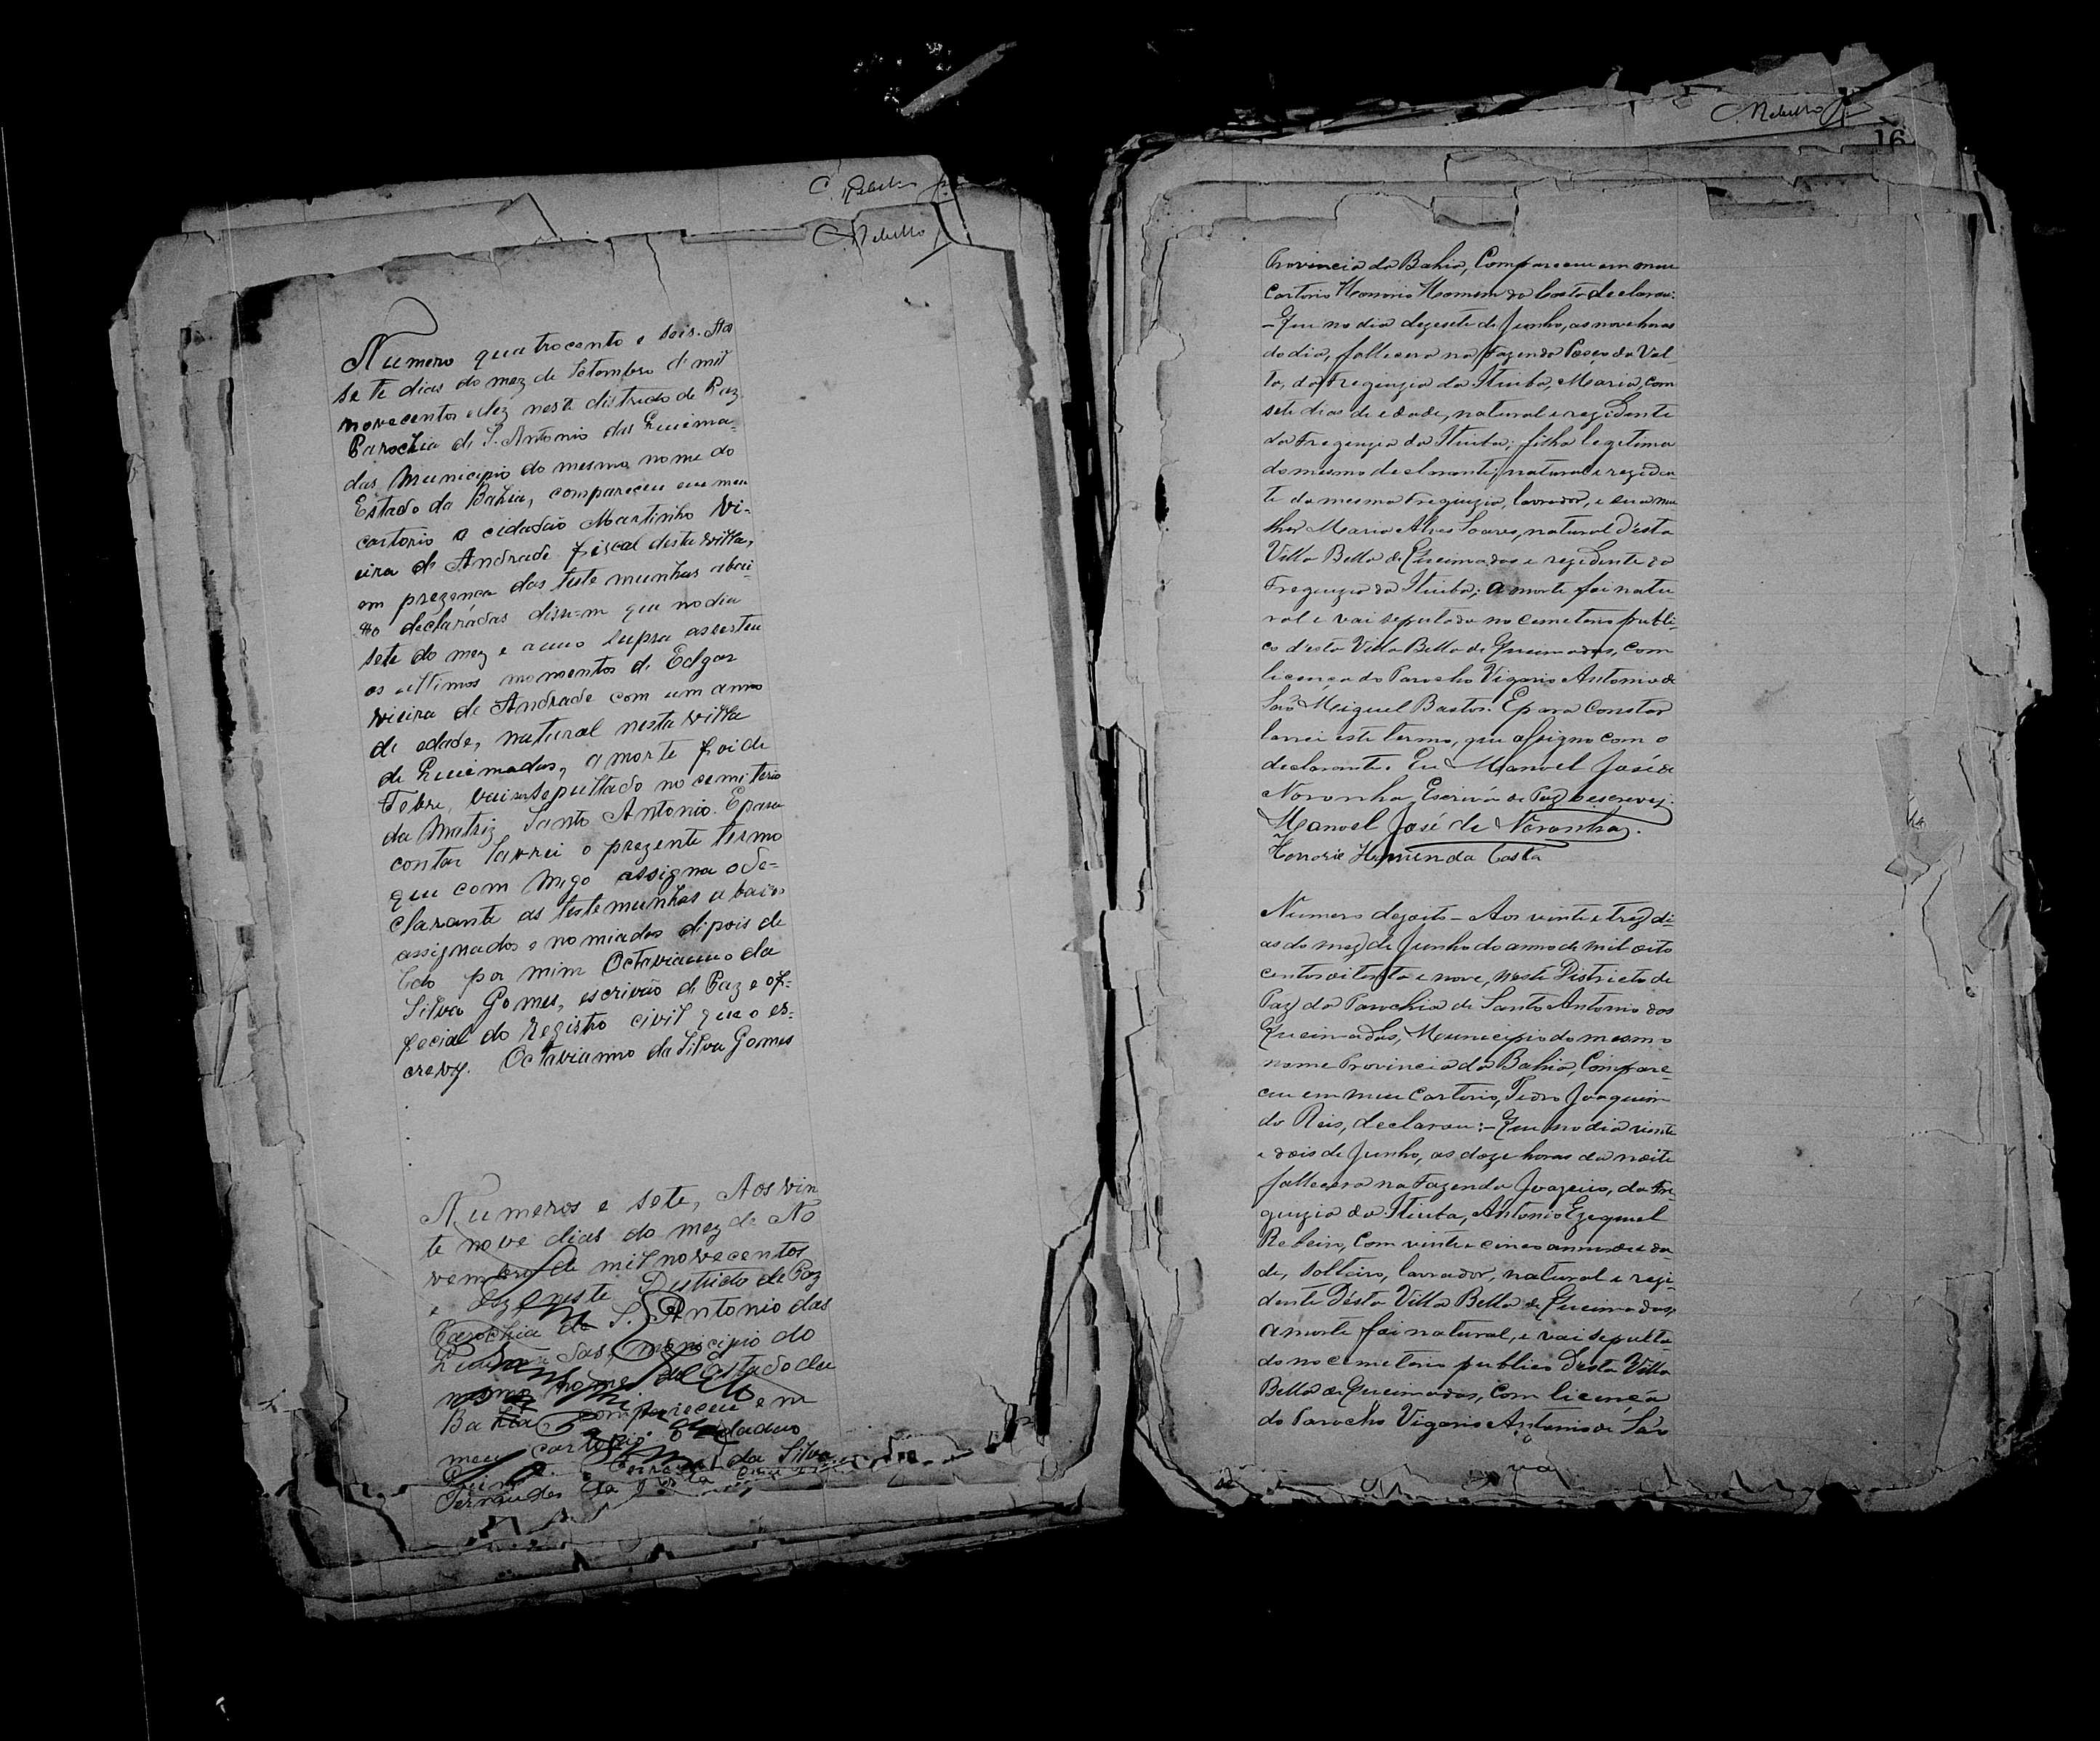 Rebello
Numero quatrocento e seis. Aos
sete dias do mez de Setembro de mil
novecentos e dez neste districto de Paz
Parochia de S. Antonio das Queima-
das Municipio do mesmo nome do
Estado da Bahia, compareceu em meu
cartorio o cidadão Martinho Vi-
eira de Andrade fiscal desta villa,
em prezença das testemunhas abai-
xo declaradas disse-m que no dia
sete do mez e anno supra assestiu
os ultimos momentos de Edgar
Vieira de Andrade com um anno
de edade, natural nesta villa
de Queimadas, a morte foi de
Febre, vai ser sepultado no cemiterio
da Matriz Santo Antonio. E para
contar lavrei o prezente termo
que com migo assigna o de-
clarante as testemunhas abaixo
assignados e nomiados dipois de
lido por mim Octavianno da
Silva Gomes, escrivão de Paz e of-
fecial do Registro civil que o es-
crevy. Octavianno da Silva Gomes
Numeros e sete, Aos vin
te nove dias do mez de No
vembro de mil novecentos
e dez neste Districto de Paz
Parochia de S. Antonio das
municipio do
mesmo nome do Estado da
Bahia compareceu em
meu cartorio o cidadão
da Silva
Fernandes da
Rebello
16
Provincia da Bahia, Compareceu em meu
Cartorio Honorio Homem da Costa declarou:
-Que no dia dezesete de Junho, as nove horas
do dia, fallecera na Fazenda Poço da Val-
ta, da Freguezia da Itiuba, Maria, com
sete dias de edade, natural e rezidente
da Freguezia da Itiuba; filha legitima
do mesmo declarante, natural e reziden
te da mesma Freguezia, lavrador, e sua mu
lher Maria Alves Soares, natural d'esta
Villa Bella de Queimadas e rezidente da
Freguezia da Itiuba; a morte foi natu
ral e vai sepultada no cemeterio publi-
co d'esta Villa Bella de Queimadas, com
licença do Parocho Vigario Antonio de
São Miguel Bastos. E para constar
lavrei este termo, que assigno com o
declarante. Eu Manoel José de
Noronha Escrivão de Paz o escrevy.
Manoel José de Noronha.
Honorio Homem da Costa
Numero dezoito - Aos vinte e trez di-
as do mez de Junho do anno de mil oito
centos oitenta e nove, neste Districto de
Paz da Parochia de Santo Antonio das
Queimadas, Municipio do mesmo
nome Provincia da Bahia, Compare-
ceu em meu Cartorio, Pedro Joaquim
do Reis, declarou: - Que no dia vinte
e dois de Junho, as doze horas da noite
fallecera na Fazenda Joazeiro, da Fre-
guezia da Itiuba, Antonio Ezequiel
Rebeiro, Com vinte e cinco annos de eda
de, solteiro, lavrador, natural e rezi-
dente d'ésta Villa Bella de Queimadas,
a morte foi natural, e vai sepulta-
do no cemeterio publico desta Villa
Bella de Queimadas, Com licença
do Parocho Vigario Antonio de São